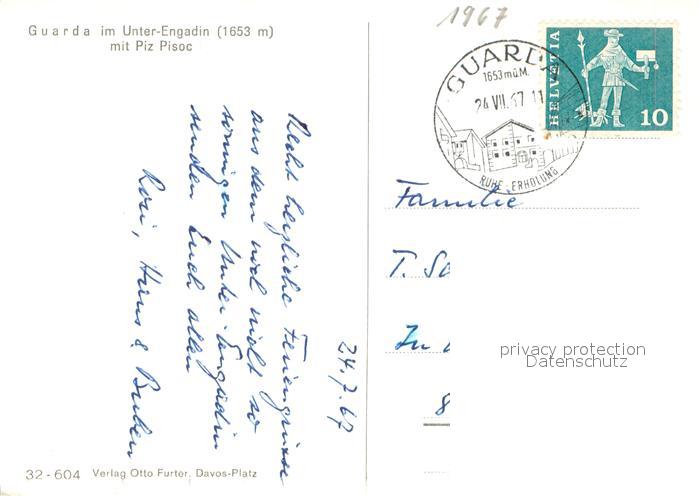 Guarda im Unter-Engadin (1653 m)
mit Piz Pisoc
1967
GUARDA
1653 m ü M.
24.VII.67 11
RUHE - ERHOLUNG
HELVETIA
10
24.7.67
Recht herzliche Feriengrüsse
aus dem noch nicht so
sonnigen Unter-Engadin
senden Euch allen
Rösi, Hans & Buben
Familie
T. Sc
In d
8
privacy protection
Datenschutz
32-604 Verlag Otto Furter, Davos-Platz